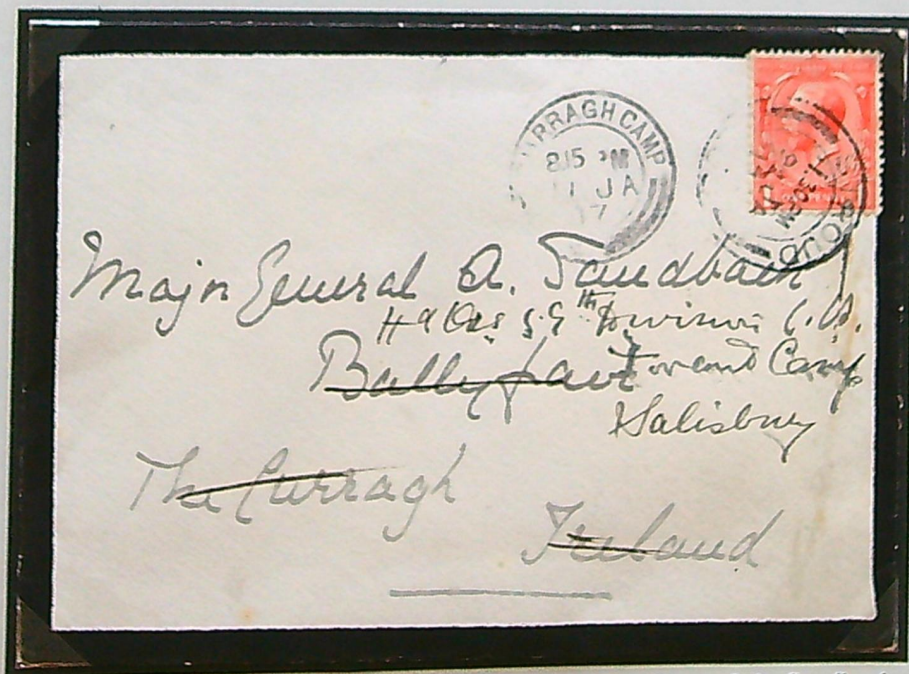 CURRAGH CAMP
8.15 PM
JA
17
STROUD
Major General A. Sandbach
Hd Qrs 59th Division
Bally
Camp
Salisbury
The Curragh
Ireland